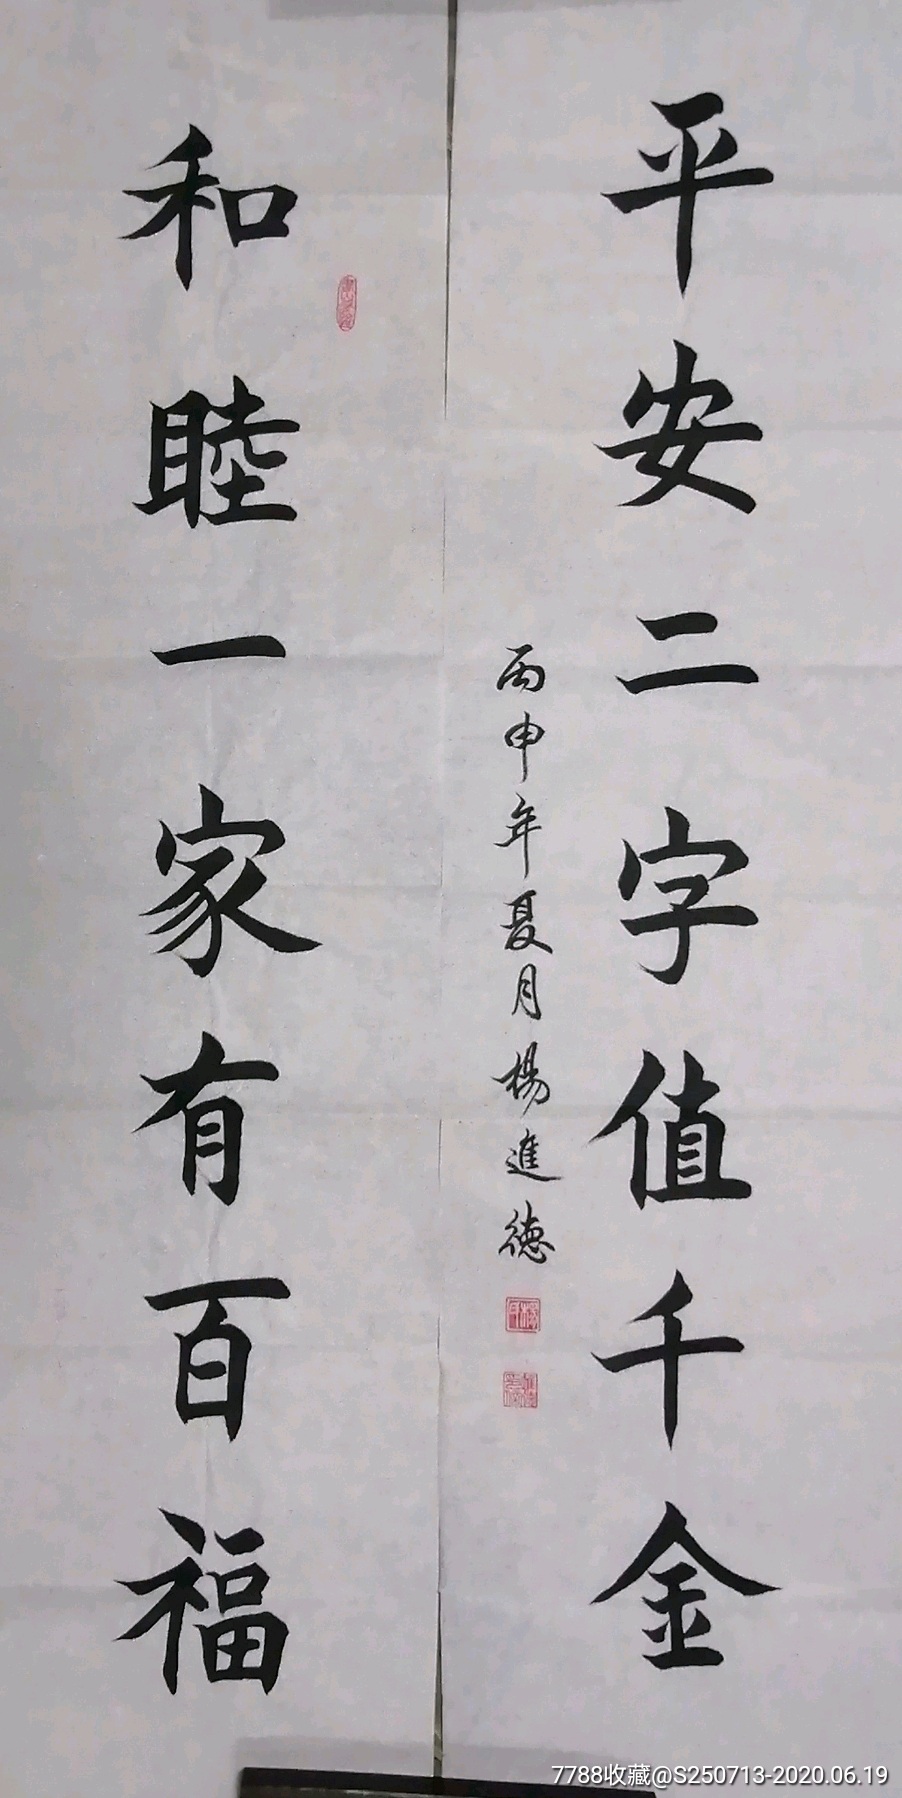 平安二字值千金
丙申年夏月楊進德
和睦一家有百福
7788收藏@S250713-2020.06.19